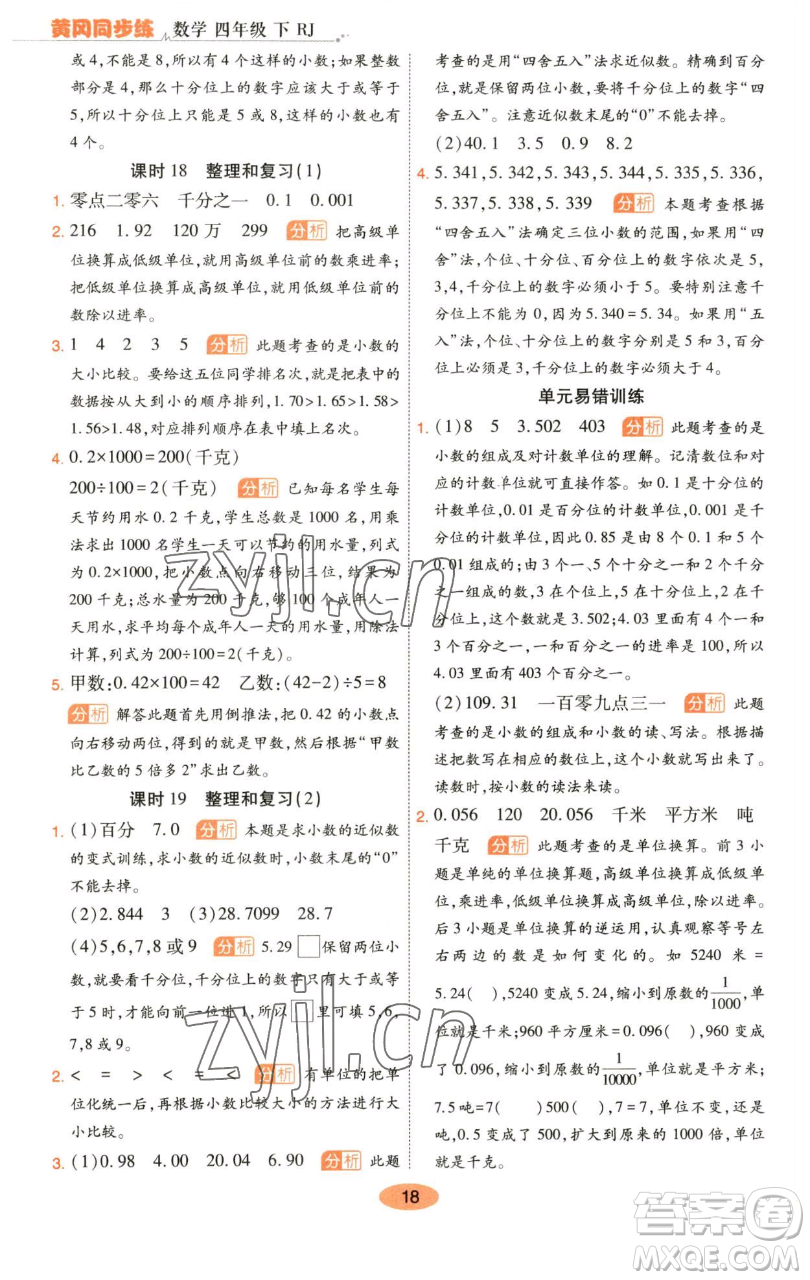 黄冈同步练 数学 四年级 下 RJ
或 4,不能是 8,所以有 4 个这样的小数;如果整数
部分是 4,那么十分位上的数字应该大于或等于
5,所以十分位上只能是 5 或 8,这样的小数也有
4 个。
课时 18 整理和复习(1)
1. 零点二零六 千分之一 0.1 0.001
2. 216 1.92 120 万 299 分析 把高级单
位换算成低级单位,就用高级单位前的数乘进率;
把低级单位换算成高级单位,就用低级单位前的
数除以进率。
3. 1 4 2 3 5 分析 此题考查的是小数的
大小比较。要给这五位同学排名次,就把表中的
数按从大到小的顺序排列,1.70>1.65>1.58>
1.56>1.48,对应排列顺序在表中填数。
4. 0.2×1000=200(千克)
200÷100=2(千克) 分析 已知每名学生每
天节约用水 0.2 千克,学生总数是 1000 名,用乘
法求出 1000 名学生一天可以节约的用水量,列式
为 0.2×1000,把小数点向右移动三位,结果为
200 千克;总水量为 200 千克,够 100 个成年人一
天用水,求平均每个成年人一天的用水量,用除法
计算,列式为 200÷100=2(千克)。
5. 甲数:0.42×100=42 乙数:(42-2)÷5=8
分析 解答此题首先用倒推法,把 0.42 的小数点
向右移动两位,得到的就是甲数,再根据“甲数
比乙数的 5 倍多 2”求出乙数。
课时 19 整理和复习(2)
1. (1)百分 7.0 分析 本题是求小数的近似数
的变式训练,求小数的近似数时,小数末尾的“0”
不能去掉。
(2)2.844 3 (3)28.7099 28.7
(4)5,6,7,8 或 9 分析 5.29□保留两位小
数,就要看千分位,千分位上的数字只有大于或等
于 5 时,才能向前一位进 1,所以□里可填 5,6,
7,8 或 9。
2. < = > < = < 分析 有单位的把单
位化统一后,再根据小数比较大小的方法进行大
小比较。
3. (1)0.98 4.00 20.04 6.90 分析 此题
考查的是用“四舍五入”法求近似数。精确到百分
位,就是保留两位小数,要将千分位上的数字“四
舍五入”。注意近似数末尾的“0”不能去掉。
(2)40.1 3.5 0.9 8.2
4. 5.341,5.342,5.343,5.344,5.335,5.336,
5.337,5.338,5.339 分析 本题考查根据
“四舍五入”法确定三位小数的范围,如果用“四
舍”法,个位、十分位、百分位上的数字依次是 5,
3,4,千分位上的数字必须小于 5。要特别注意千
分位上不能为 0,因为 5.340=5.34。如果用“五
入”法,个位、十分位上的数字分别是 5 和 3,百分
位上必须是 3,千分位上的数字必须大于 4。
单元易错训练
1. (1)8 5 3.502 403 分析 此题考查的是
小数的组成及对计数单位的理解。记清数位和对
应的计数单位就可直接作答。如 0.1 是十分位的
计数单位,0.01 是百分位的计数单位,0.001 是千
分位的计数单位,所以 0.85 是由 8 个 0.1 和 5 个
0.01 组成的;3 个一、5 个十分之一和 2 个千分之
一组成的数,3 在个位上,5 在十分位上,2 在千分
位上,所以这个数是 3.502;4.03 里面有 4 个一和
3 个百分之一,一和百分之一的进率是 100,所以
4.03 里面有 403 个百分之一。
(2)109.31 一百零九点三一 分析 此题
考查的是小数的组成和小数的读、写法。根据描
述把数写在相应的数位上,就可以写出来了。
读数时,按小数的读法来读。
2. 0.056 120 20.056 千米 平方米 吨
千克 分析 此题考查的是单位换算。前 3 小
题是单纯的单位换算题,高级单位换算成低级单
位,乘进率,低级单位换算成高级单位,除以进率。
后 3 小题是单位换算的逆运用,认真观察等号左
右两边的数是如何变化的。如 5240 米 =
5.24( ),5240 变成 5.24,缩小到原数的1/1000,单
位就是千米;960 平方厘米 = 0.096( ),960 变成
了 0.096,缩小到原数的1/10000,单位就是平方米;
7.5 吨=7( )500( ),7=7,单位不变,还是
吨,0.5 变成了 500,扩大到原来的 1000 倍,单位
就是千克。
18
zyjl.cn
zyjl.cn
答案圈
MXQE.COM